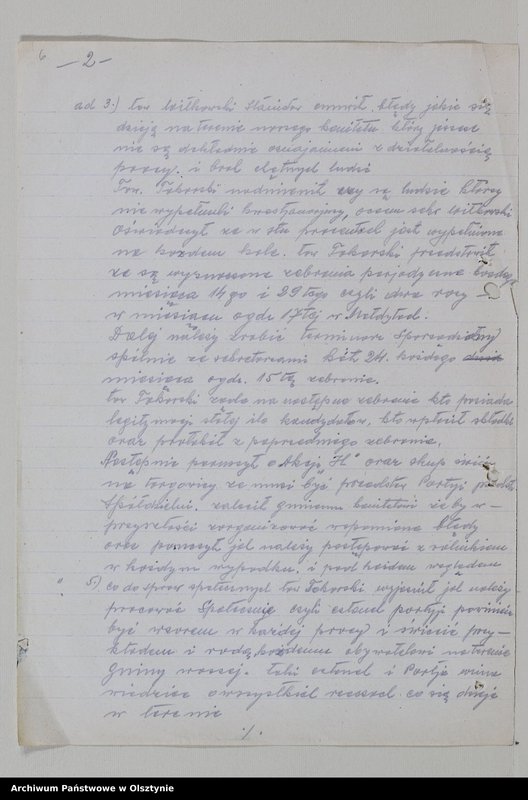 6
— 2 —
ad 3.) tow Witkowski Stanisław omówił błędy jakie się
dzieją na terenie naszego komitetu którzy jeszcze
nie są dokładnie oznajmieni z działalnością
pracy. i brak chętnych ludzi
Tow. Tokarski nadmienił czy są ludzie którzy
nie wypełnili kwestjonarjusz, sekr Witkowski
oświadczył że w stu procentach jest wypełnione
na każdem kole. tow Tokarski przedstawił
że są wyznaczone zebrania perjodyczne każdego
miesiąca 14go i 29tego czyli dwa razy —
w miesiącu o gdz 17tej w
Dalej należy zrobić terminarz
spólnie ze sekretarzami kół 24. każdego
miesiąca o gdz. 15tą zebranie.
tow Tokarski żąda na następne zebranie kto posiada
legitymacji stałej ilu kandydatów, kto opłacił składki
oraz protokół z poprzedniego zebrania.
Następnie poruszył o Akcji "H" oraz skup
na targowicy że musi być przedstaw Partyji
Spółdzielni. zalecił gminnemu komitetowi żeby w —
przyszłości zorganizować wspomniane błędy
oraz poruszył jak należy postępować z rolnikiem
w każdym wypadku. i pod każdem względem
" 5) co do spraw społecznych tow Tokarski wyjaśnił jak należy
pracować społecznie czyli członek partyji powinien
być wzorem w każdej pracy i świecić przy—
kładem i radą każdemu obywatelowi na terenie
Gminy naszej. taki członek i Partja winna
wiedzieć o wszystkich rzeczach co się dzieje
w terenie
./.
Archiwum Państwowe w Olsztynie